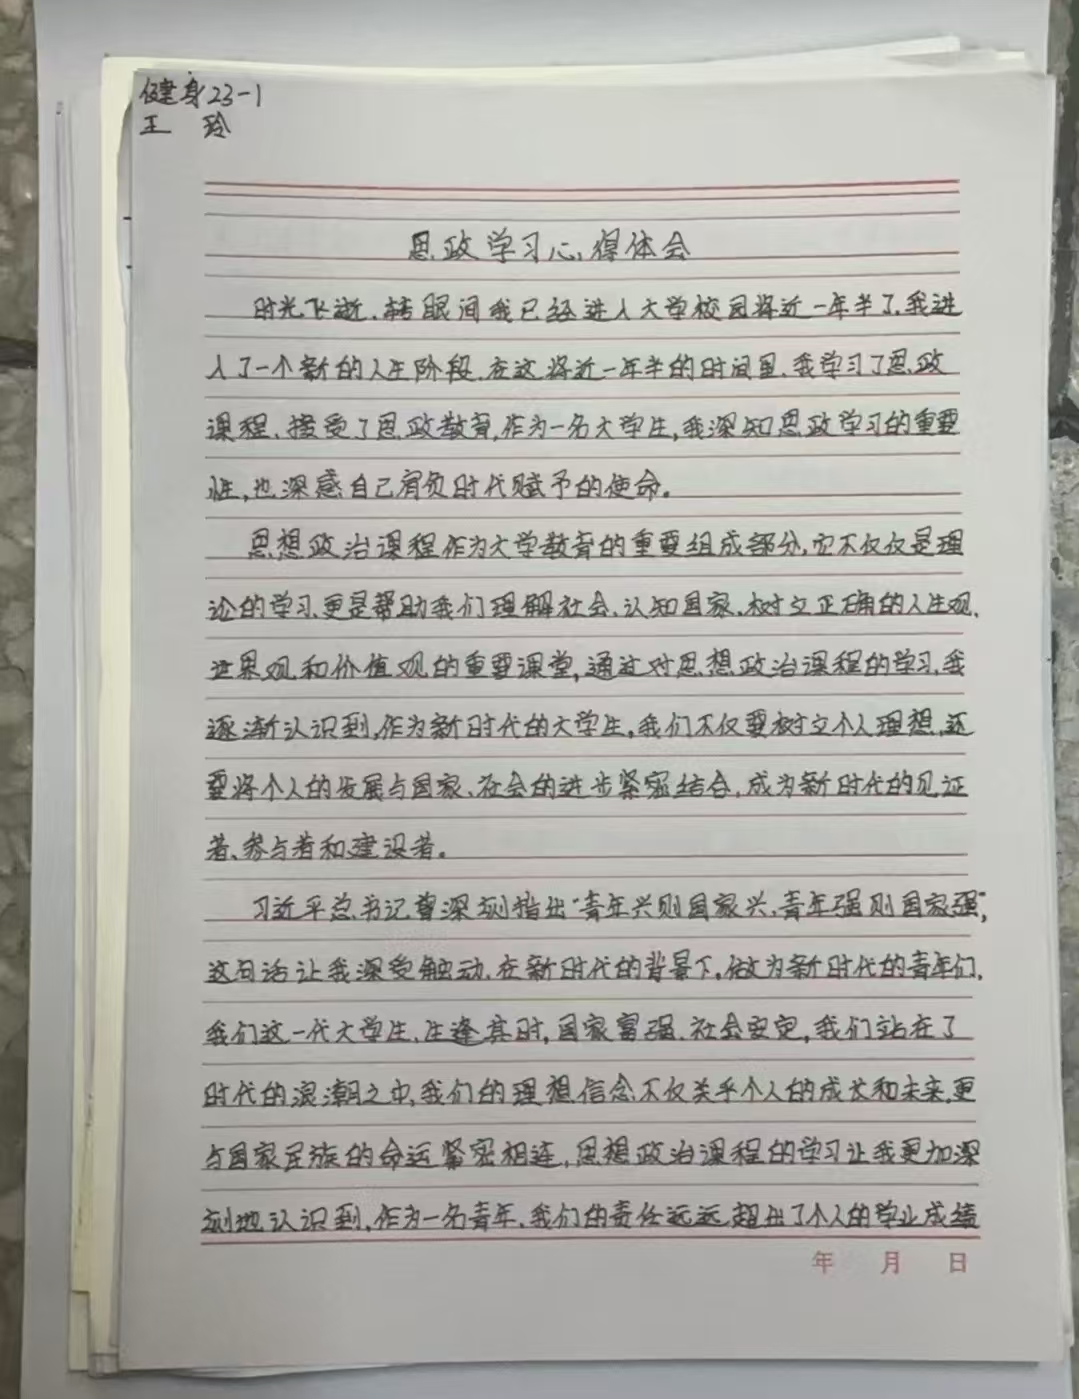 健身23-1
王 玲
思政学习心得体会
时光飞逝,转眼间我已经进入大学校园将近一年半了,我进
入了一个新的人生阶段,在这将近一年半的时间里,我学习了思政
课程、接受了思政教育,作为一名大学生,我深知思政学习的重要
性,也深感自己肩负时代赋予的使命。
思想政治课程作为大学教育的重要组成部分,它不仅仅是理
论的学习,更是帮助我们理解社会、认知国家、树立正确的人生观、
世界观和价值观的重要课堂,通过对思想政治课程的学习,我
逐渐认识到,作为新时代的大学生,我们不仅要树立个人理想,还
要将个人的发展与国家、社会的进步紧密结合,成为新时代的见证
者、参与者和建设者。
习近平总书记曾深刻指出“青年兴则国家兴,青年强则国家强”,
这句话让我深受触动,在新时代的背景下,做为新时代的青年们,
我们这一代大学生,生逢其时,国家富强、社会安定,我们站在了
时代的浪潮之中,我们的理想信念不仅关乎个人的成长和未来,更
与国家民族的命运紧密相连,思想政治课程的学习让我更加深
刻地认识到,作为一名青年,我们的责任远远超出了个人的学业成绩
年 月 日